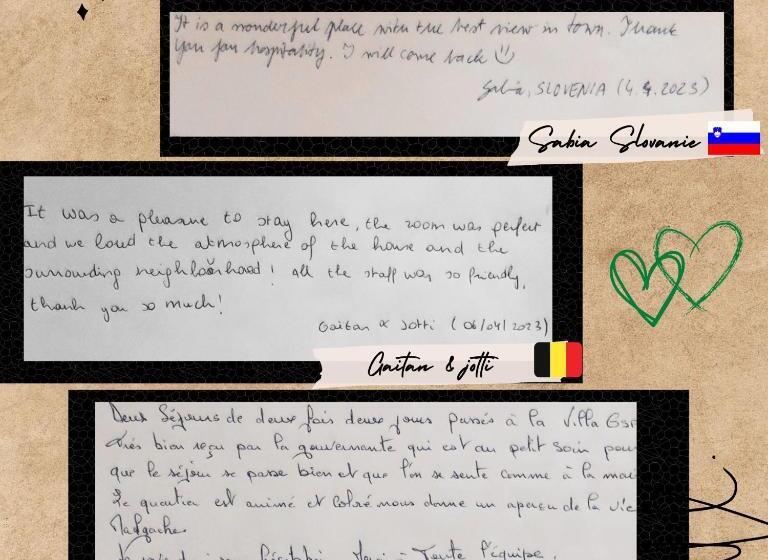 It is a wonderful place with the best view in town. Thank
you for hospitality. I will come back
Sabia, SLOVENIA (4.4.2023)
Sabia Slovanie
It was a pleasure to stay here, the room was perfect
and we loved the atmosphere of the house and the
surrounding neighborhood! All the staff was so friendly,
thank you so much!
Gaitan & Jotti (06/04/2023)
Gaitan & jotti
Deux Séjours de deux fois deux jours passés à la Villa
Très bien reçu par la gouvernante qui est au petit soin pour
que le séjour se passe bien et que l'on se sente comme à la
Le quartier est animé et coloré nous donne un aperçu de la vie
Malgache.
Merci à Toute l'équipe.